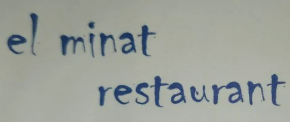 el minat
restaurant